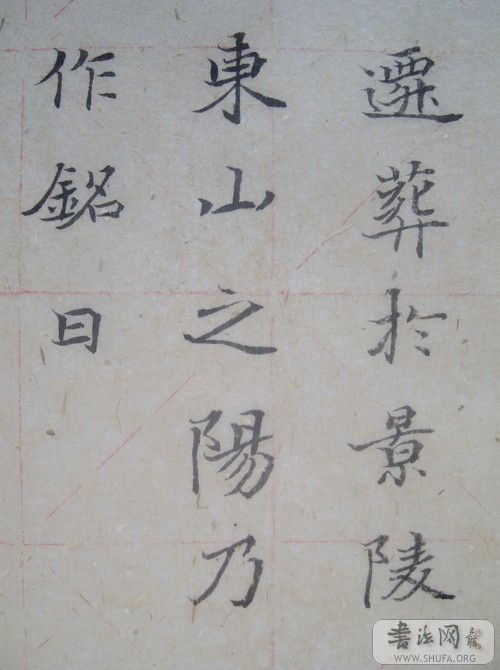 遷葬於景陵
東山之陽乃
作銘曰
書法网
WWW.SHUFA.ORG